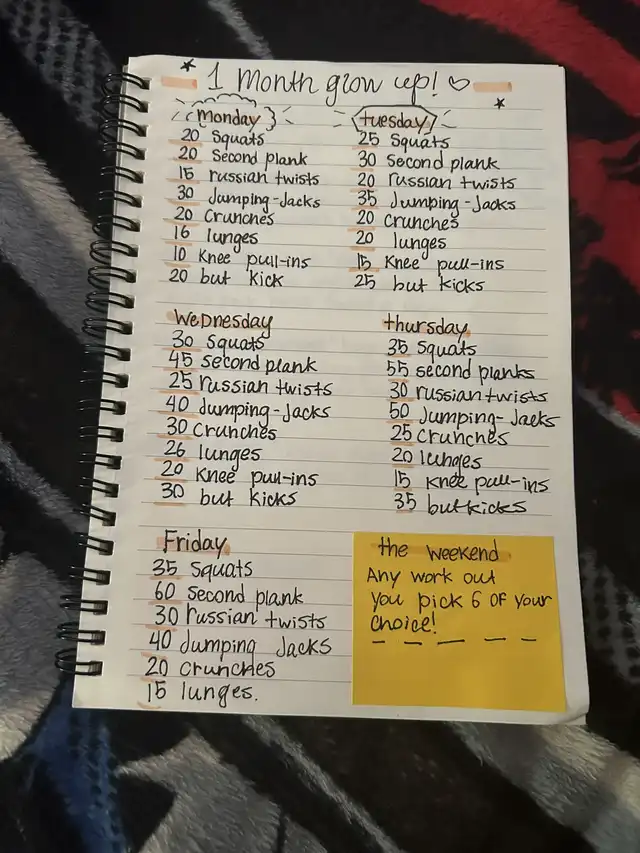 1 Month glow up!
Monday
20 Squats
20 Second plank
15 russian twists
30 Jumping-Jacks
20 Crunches
16 lunges
10 Knee pull-ins
20 but kick
tuesday
25 Squats
30 second plank
20 russian twists
35 Jumping-Jacks
20 crunches
20 lunges
15 Knee pull-ins
25 but kicks
Wednesday
30 squats
45 second plank
25 russian twists
40 Jumping-Jacks
30 Crunches
26 lunges
20 Knee pull-ins
30 but kicks
thursday
35 Squats
55 second planks
30 russian twists
50 Jumping-Jacks
25 crunches
20 lunges
15 Knee pull-ins
35 but kicks
Friday
35 Squats
60 second plank
30 russian twists
40 Jumping Jacks
20 crunches
15 lunges.
the weekend
Any work out
you pick 6 of your
choice!